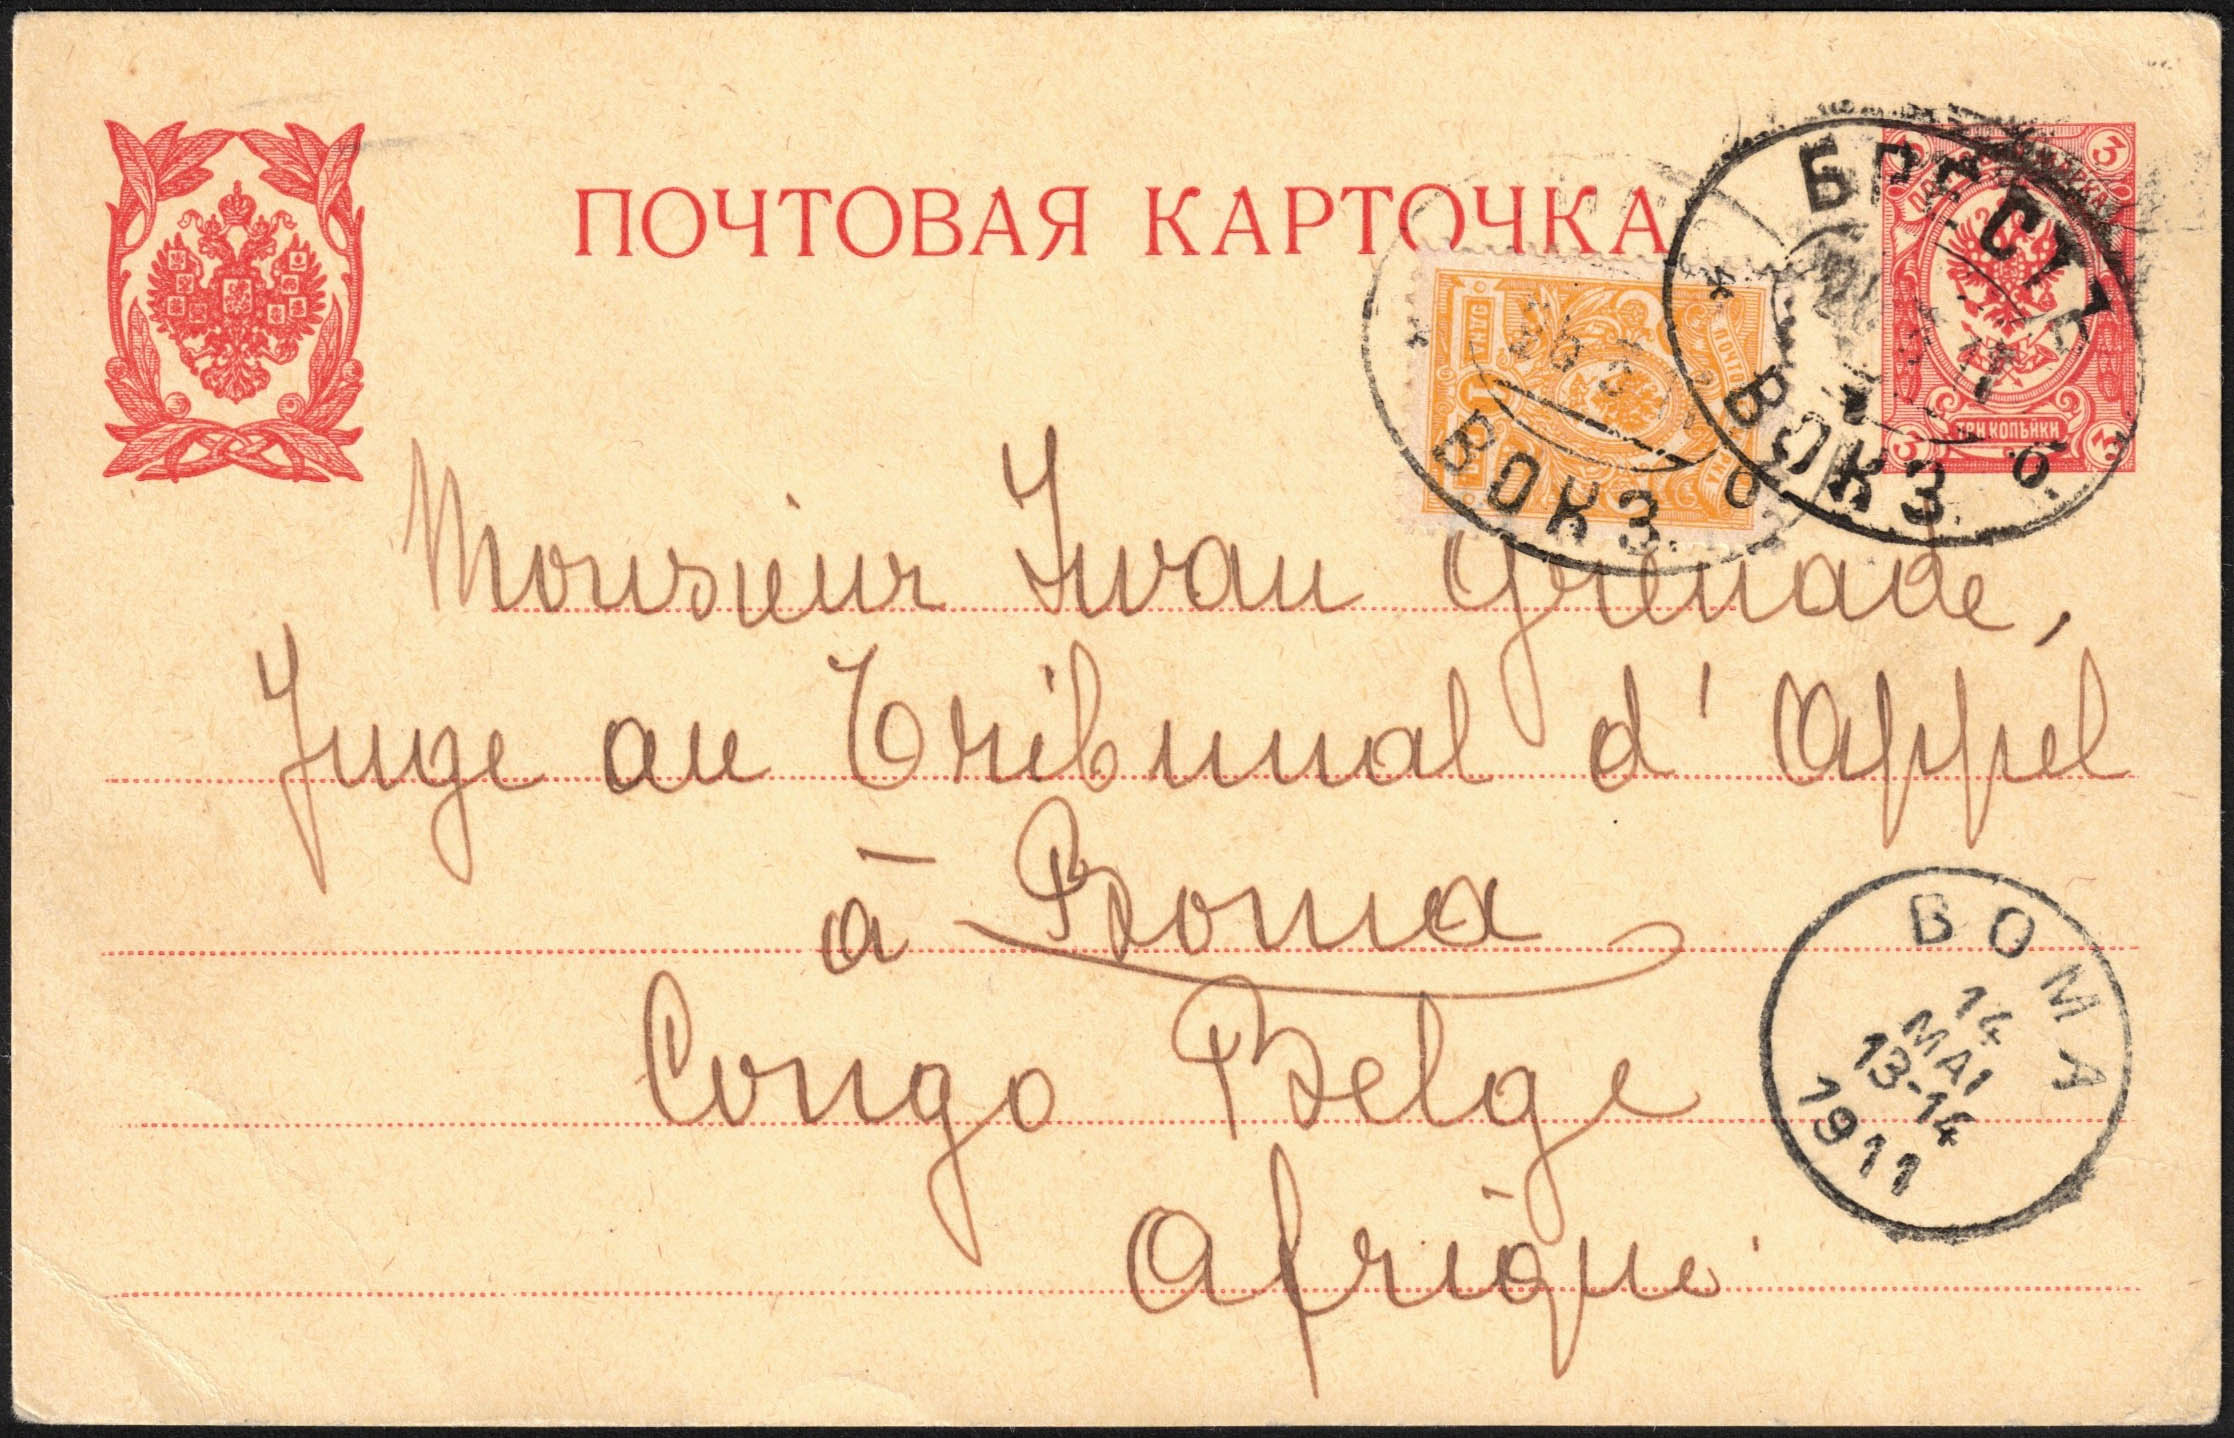 ПОЧТОВАЯ КАРТОЧКА
БРЕСТЪ
ВОКЗ. б.
ВОКЗ.
3
3
3
ТРИ КОПѢЙКИ
Monsieur Iwan Grenade,
Juge au Tribunal d'Appel
à Boma
Congo Belge
Afrique.
BOMA
14
MAI
13-14
1911